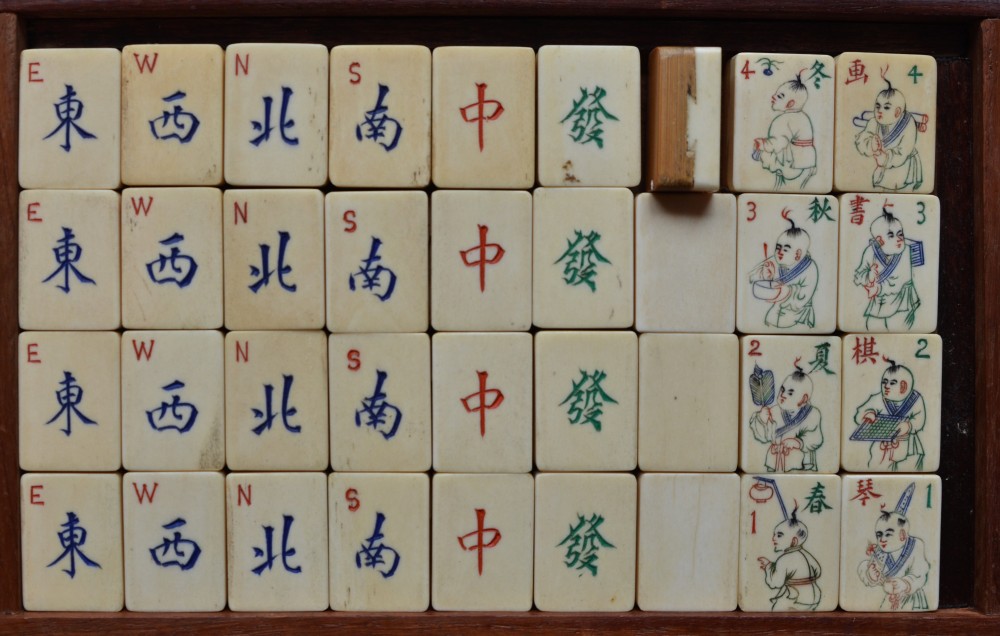 E 東 W 西 N 北 S 南 中 發 4 冬 画 4
E 東 W 西 N 北 S 南 中 發 3 秋 書 3
E 東 W 西 N 北 S 南 中 發 2 夏 棋 2
E 東 W 西 N 北 S 南 中 發 1 春 琴 1